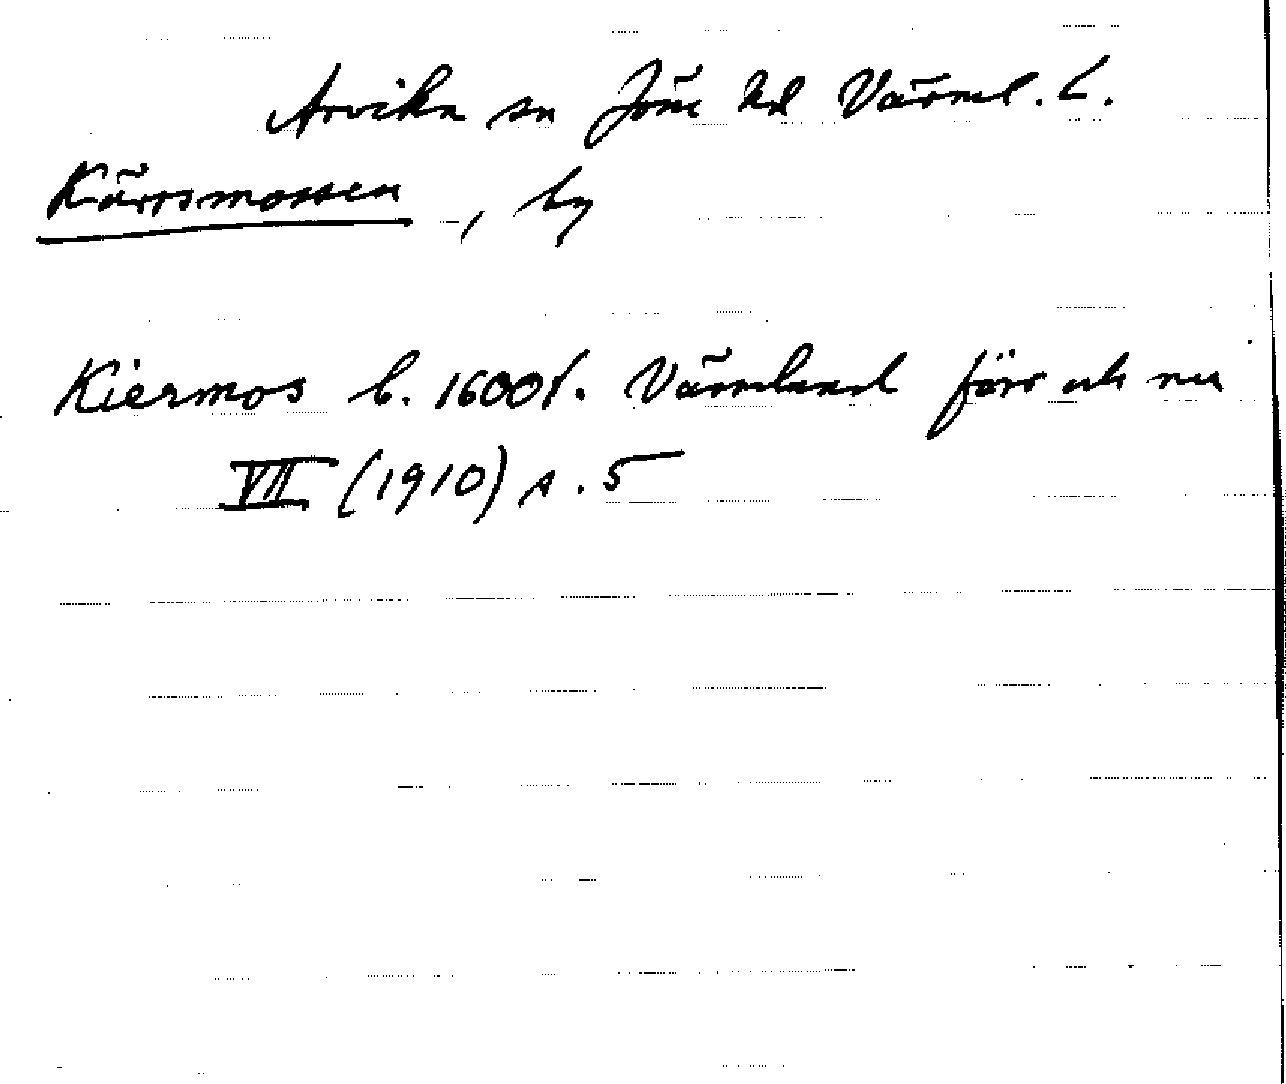 Arvika sn Jöss hd Värml. l.
Kärrsmossen, by
Kiermos b. 1600 t. Värmland förr och nu
VII (1910) s. 5